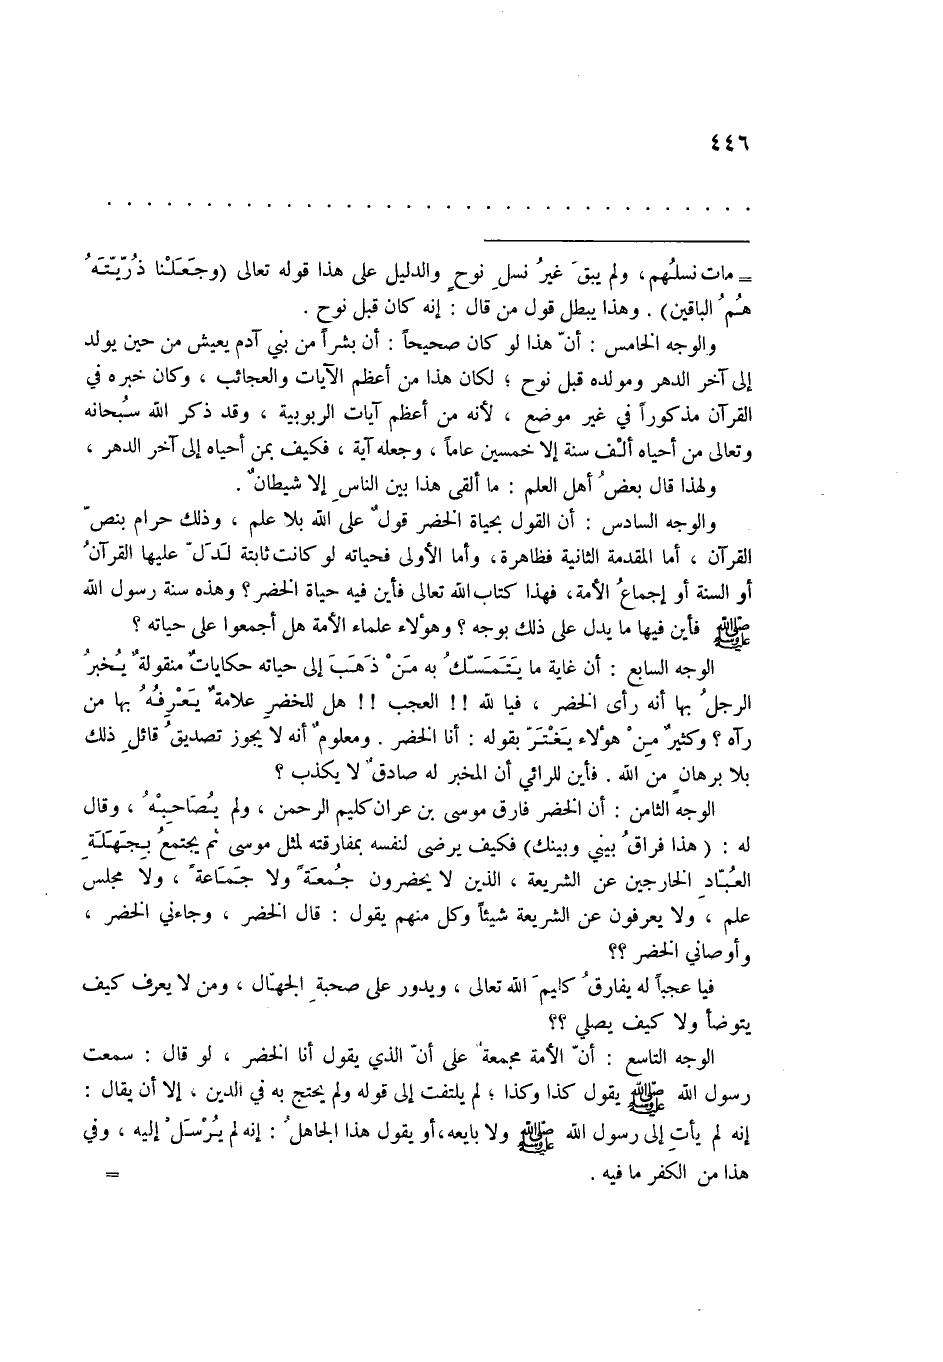 ٤٤٦
. . . . . . . . . . . . . . . . . . . . . . . . . . . . . . . . .
= مات نسلُهم، ولم يبقَ غيرُ نسلِ نوحٍ والدليل على هذا قوله تعالى (وجَعَلْنا ذُرّيّتَهُ
هُمُ الباقين) . وهذا يبطل قول من قال : إنه كان قبل نوح .
والوجه الخامس : أنّ هذا لو كان صحيحاً : أن بشراً من بني آدم يعيش من حين يولد
إلى آخر الدهر ومولده قبل نوح ؛ لكان هذا من أعظم الآيات والعجائب ، وكان خبره في
القرآن مذكوراً في غير موضع ، لأنه من أعظم آيات الربوبية ، وقد ذكر الله سُبحانه
وتعالى من أحياه ألْف سنة إلا خمسين عاماً ، وجعله آية ، فكيف بمن أحياه إلى آخر الدهر ،
ولهذا قال بعضُ أهل العلم : ما ألقى هذا بين الناسِ إلا شيطانٌ .
والوجه السادس : أن القول بحياة الخضر قولٌ على الله بلا علم ، وذلك حرام بنصّ
القرآن ، أما المقدمة الثانية فظاهرة، وأما الأولى فحياته لو كانت ثابتة لَدَلّ عليها القرآنُ
أو السنة أو إجماعُ الأمة، فهذا كتاب الله تعالى فأين فيه حياة الخضر؟ وهذه سنة رسول الله
ﷺ فأين فيها ما يدل على ذلك بوجه ؟ وهؤلاء علماء الأمة هل أجمعوا على حياته ؟
الوجه السابع : أن غاية ما يَتَمَسّكُ به مَنْ ذَهَبَ إلى حياته حكاياتٌ منقولةٌ يُخبرُ
الرجلُ بها أنه رأى الخضر ، فيا لله !! العجب !! هل للخضرِ علامةٌ يَعْرِفُهُ بها من
رآه ؟ وكثيرٌ مِنْ هؤلاء يَغْتَرّ بقوله : أنا الخضر . ومعلومٌ أنه لا يجوز تصديقُ قائلِ ذلك
بلا برهانٍ من الله . فأين للرائي أن المخبر له صادقٌ لا يكذب ؟
الوجه الثامن : أن الخضر فارق موسى بن عران كليم الرحمن ، ولم يُصَاحِبْهُ ، وقال
له : ( هذا فراقُ بيني وبينك) فكيف يرضى لنفسه بمفارقته لمثل موسى ثم يجتمعُ بِجَهَلَةِ
العُبّادِ الخارجين عن الشريعة ، الذين لا يحضرون جُمعَةً ولا جَمَاعةً ، ولا مجلس
علم ، ولا يعرفون عن الشريعة شيئاً وكل منهم يقول : قال الخضر ، وجاءني الخضر ،
وأوصاني الخضر ؟؟
فيا عجباً له يفارقُ كليمَ الله تعالى ، ويدور على صحبةِ الجهّال ، ومن لا يعرف كيف
يتوضأ ولا كيف يصلي ؟؟
الوجه التاسع : أنّ الأمة مجمعةٌ على أنّ الذي يقول أنا الخضر ، لو قال : سمعت
رسول الله ﷺ يقول كذا وكذا ؛ لم يلتفت إلى قوله ولم يحتج به في الدين ، إلا أن يقال :
إنه لم يأتِ إلى رسول الله ﷺ ولا بايعه، أو يقول هذا الجاهلُ : إنه لم يُرْسَلْ إليه ، وفي
هذا من الكفر ما فيه . =